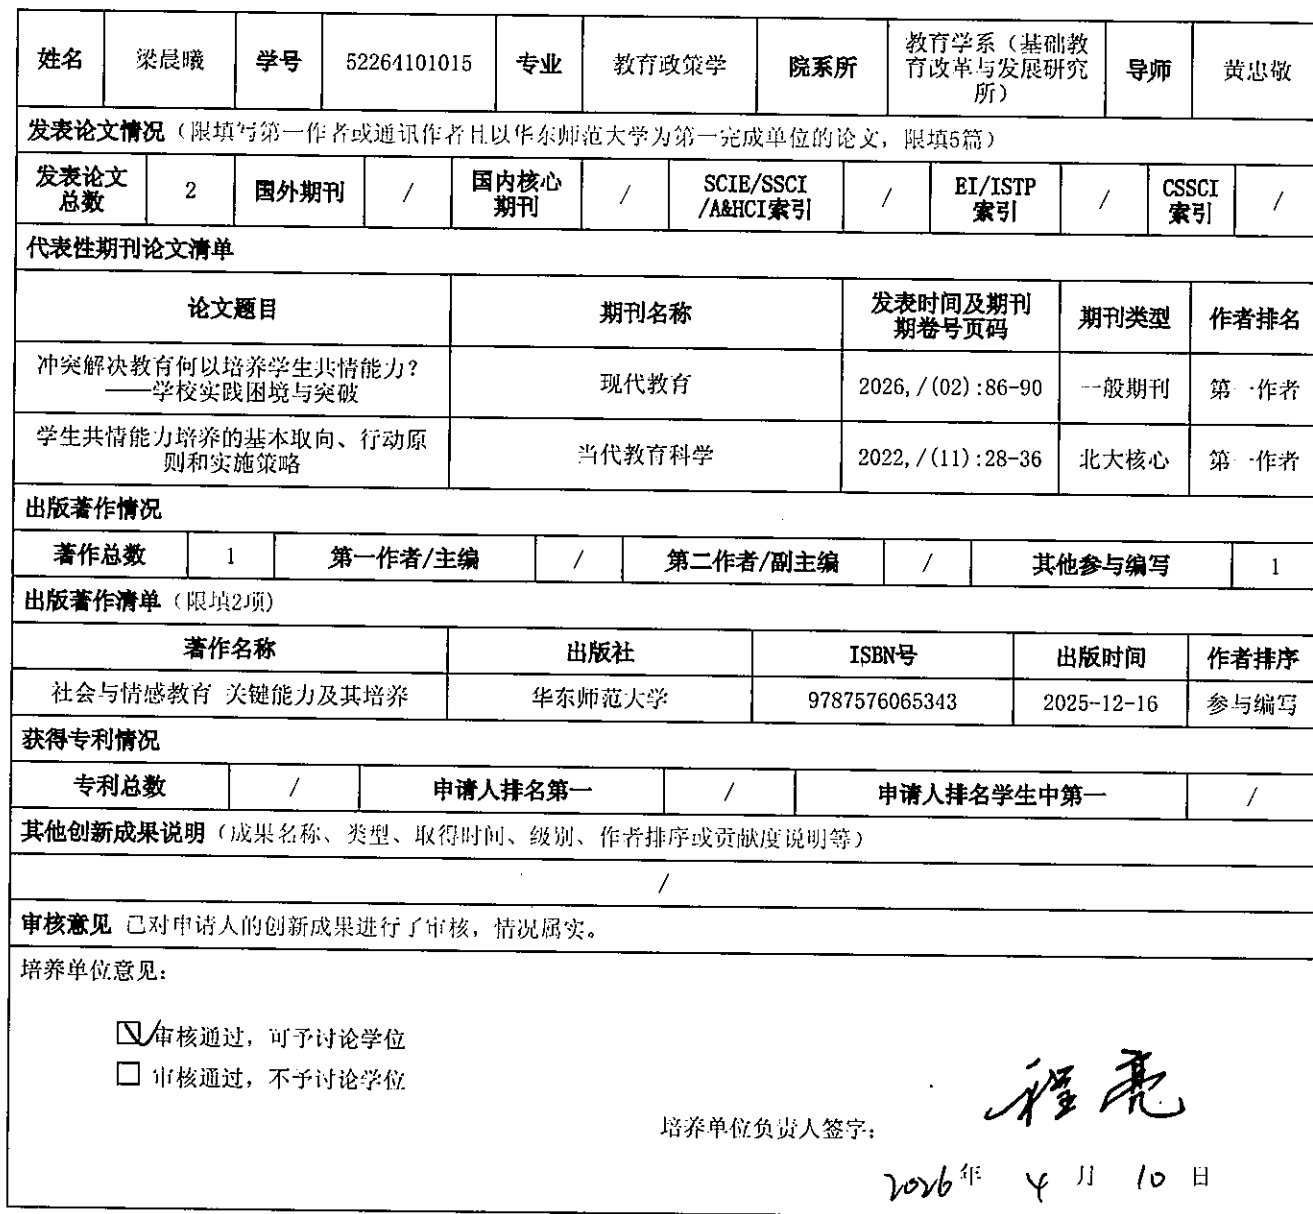 姓名 梁晨曦 学号 52264101015 专业 教育政策学 院系所 教育学系（基础教育改革与发展研究所） 导师 黄忠敬
发表论文情况（限填写第一作者或通讯作者且以华东师范大学为第一完成单位的论文，限填5篇）
发表论文总数 2 国外期刊 / 国内核心期刊 / SCIE/SSCI/A&HCI索引 / EI/ISTP索引 / CSSCI索引 /
代表性期刊论文清单
论文题目 期刊名称 发表时间及期刊期卷号页码 期刊类型 作者排名
冲突解决教育何以培养学生共情能力？——学校实践困境与突破 现代教育 2026,/(02):86-90 一般期刊 第一作者
学生共情能力培养的基本取向、行动原则和实施策略 当代教育科学 2022,/(11):28-36 北大核心 第一作者
出版著作情况
著作总数 1 第一作者/主编 / 第二作者/副主编 / 其他参与编写 1
出版著作清单（限填2项）
著作名称 出版社 ISBN号 出版时间 作者排序
社会与情感教育 关键能力及其培养 华东师范大学 9787576065343 2025-12-16 参与编写
获得专利情况
专利总数 / 申请人排名第一 / 申请人排名学生中第一 /
其他创新成果说明（成果名称、类型、取得时间、级别、作者排序或贡献度说明等）
/
审核意见 已对申请人的创新成果进行了审核，情况属实。
培养单位意见：
审核通过，可予讨论学位
审核通过，不予讨论学位
培养单位负责人签字： 程亮
2026年 4月 10日